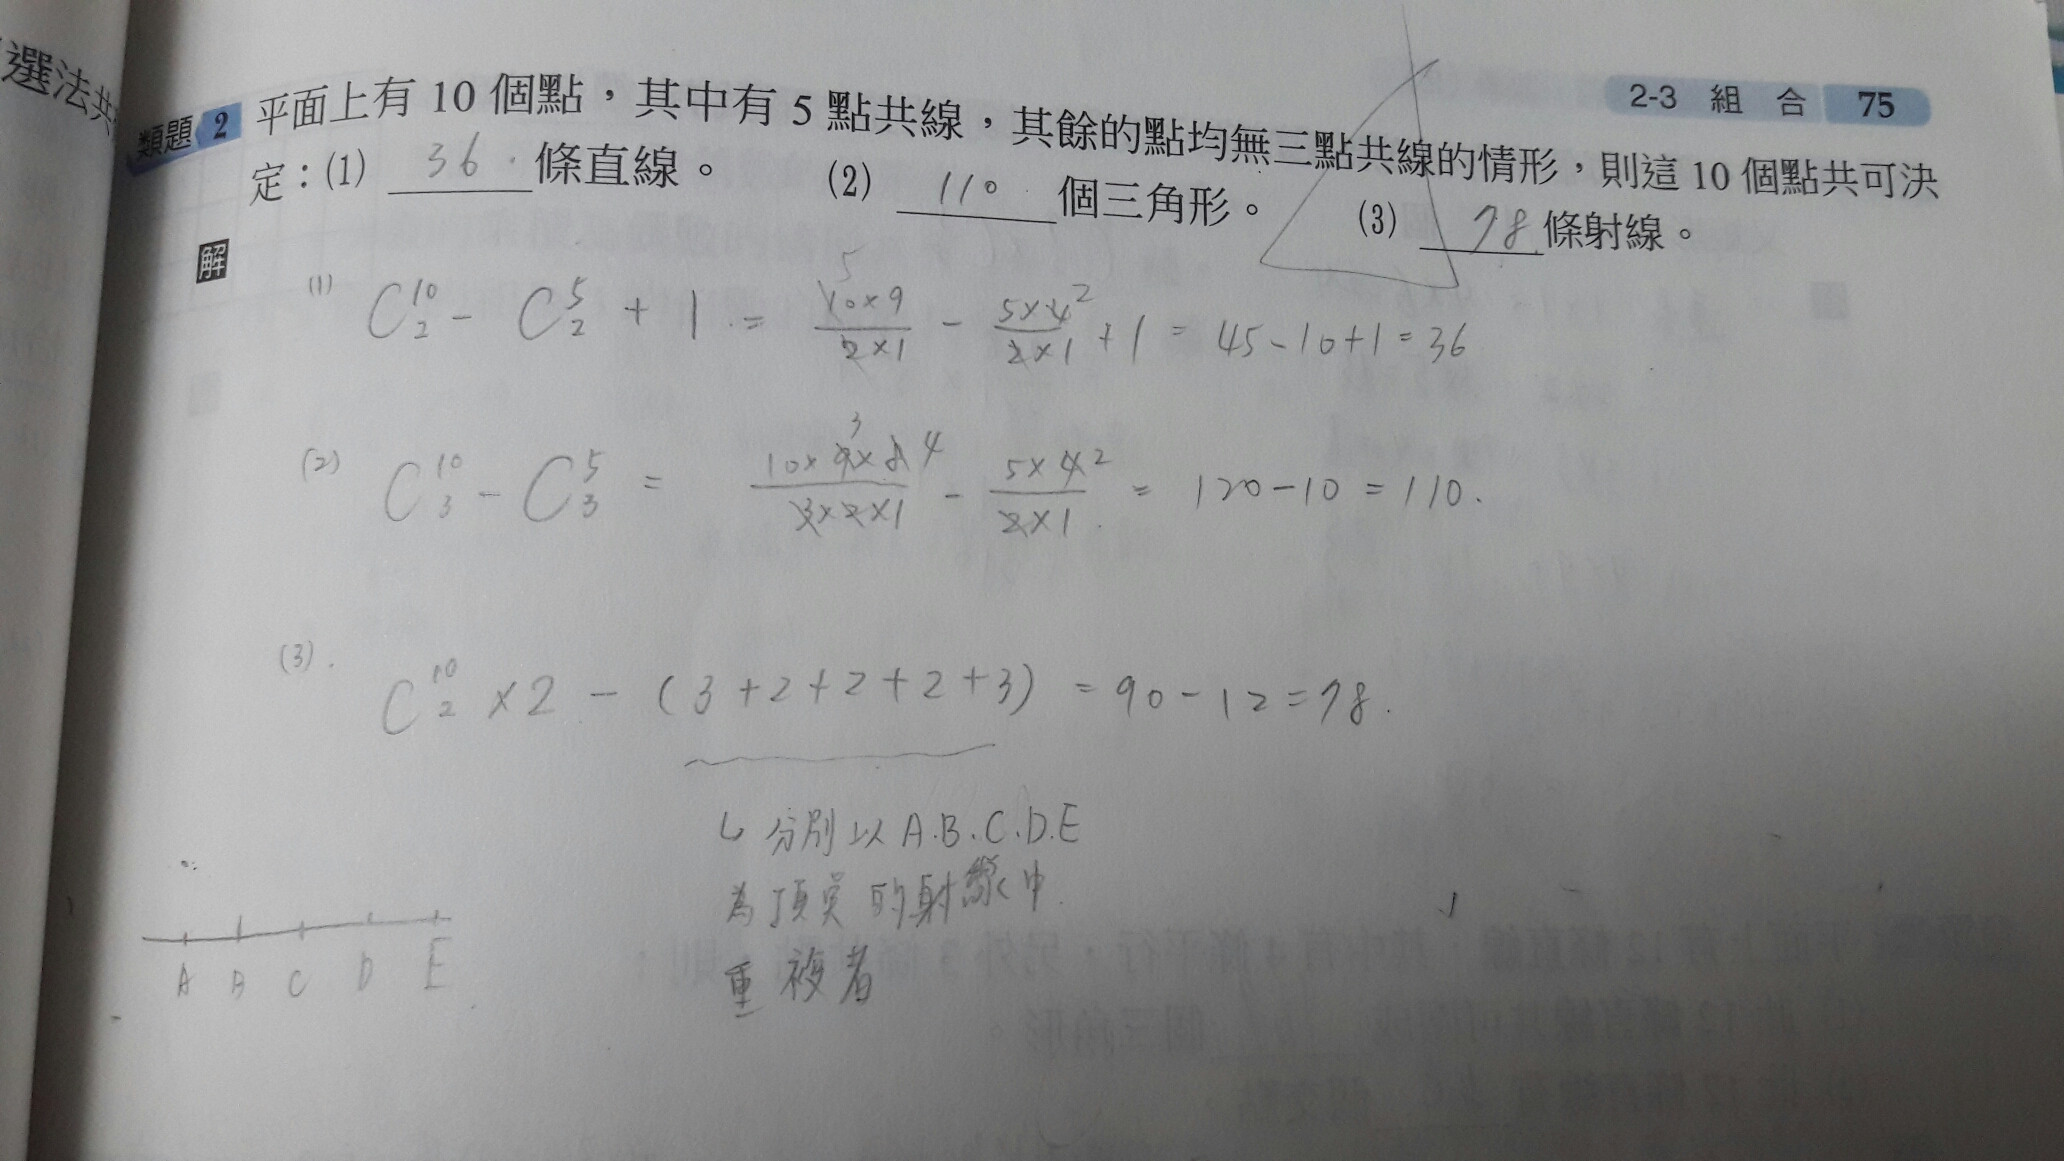 選法共
2-3 組 合 75
類題 2 平面上有 10 個點，其中有 5 點共線，其餘的點均無三點共線的情形，則這 10 個點共可決
定：(1) 36. 條直線。 (2) 110 個三角形。 (3) 78 條射線。
解
(1) C¹⁰₂ - C⁵₂ + 1 = 10×9/2×1 - 5×4/2×1 + 1 = 45-10+1=36
(2) C¹⁰₃ - C⁵₃ = 10×9×8/3×2×1 - 5×4/2×1 = 120-10=110.
(3). C¹⁰₂ ×2 - (3+2+2+2+3) = 90-12=78.
↳ 分別以 A.B.C.D.E
為頂點的射線中
重複者
A B C D E